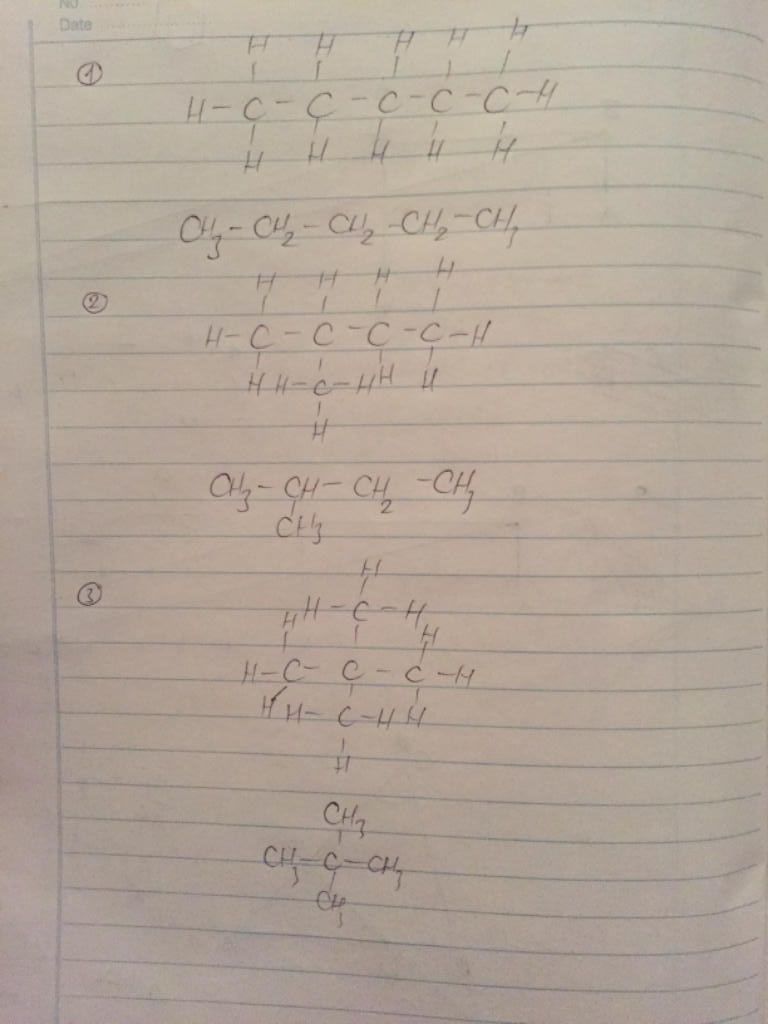 No.
Date
H H H H H
① H-C-C-C-C-C-H
H H H H H
CH3-CH2-CH2-CH2-CH3
H H H H
② H-C-C-C-C-H
H H-C-H H H
H
CH3-CH-CH2-CH3
CH3
H
③ H-C-H
H H
H-C-C-C-H
H H-C-H H
H
CH3
CH3-C-CH3
CH3